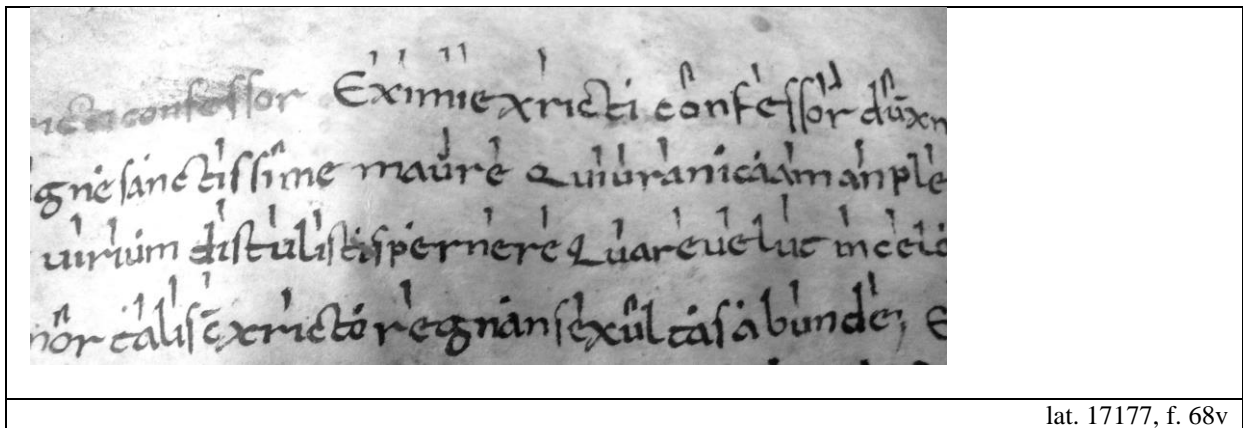 ricti confessor Eximie xricti confessor dūxn
gne sanctissime maure Qui uranicaam anple
uirium distulisti spernere Quare uelut in celo
nor talis c̄ xricto regnans exultas abunde; E
lat. 17177, f. 68v